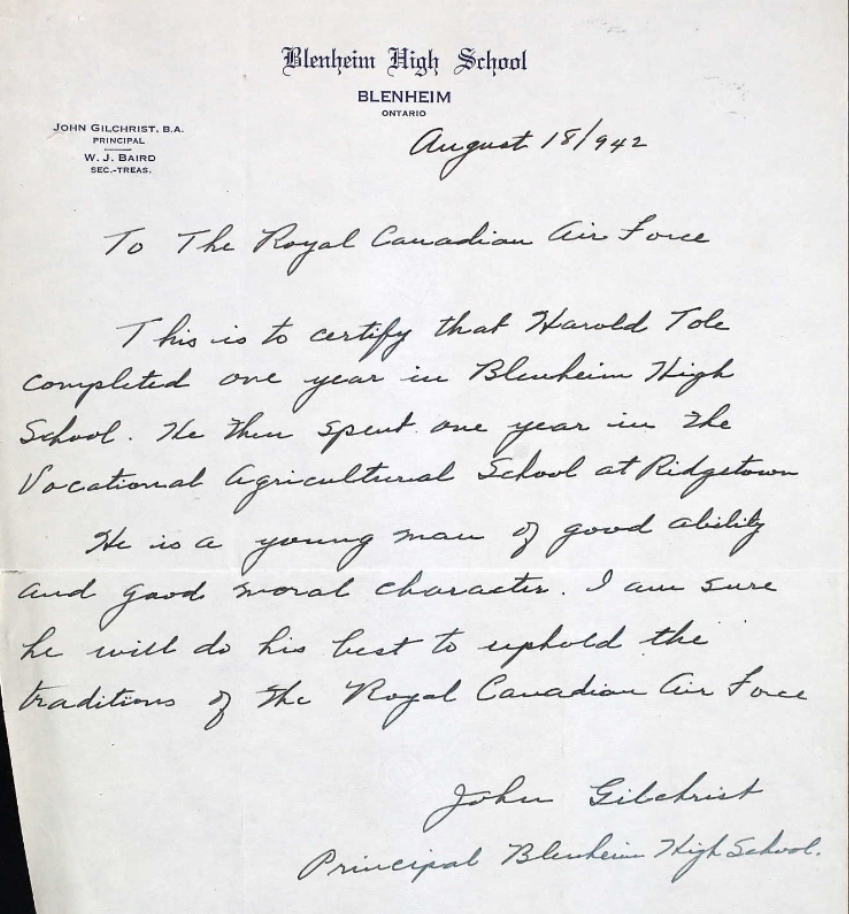 Blenheim High School
BLENHEIM
ONTARIO
JOHN GILCHRIST, B.A.
PRINCIPAL
W. J. BAIRD
SEC.-TREAS.
August 18/942
To The Royal Canadian Air Force
This is to certify that Harold Tole
completed one year in Blenheim High
School. He then spent one year in the
Vocational Agricultural School at Ridgetown
He is a young man of good ability
and good moral character. I am sure
he will do his best to uphold the
traditions of the Royal Canadian Air Force
John Gilchrist
Principal Blenheim High School.